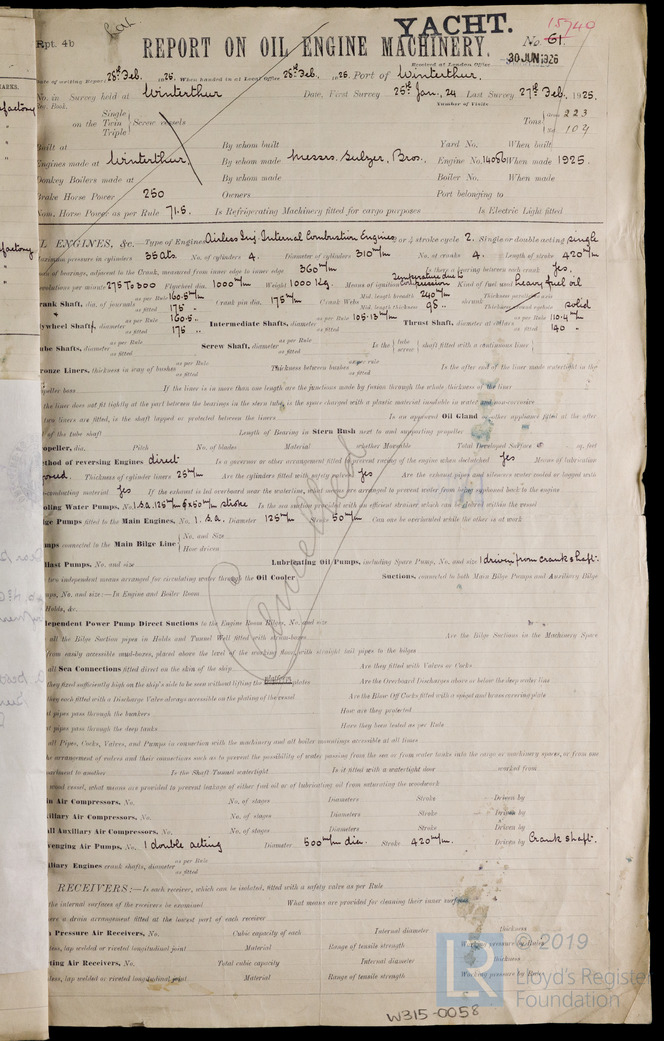 YACHT.
15740
Rpt. 4b
REPORT ON OIL ENGINE MACHINERY.
No. 61
Received at London Office
30 JUN 1926
Date of writing Report 28th Feb. 1925. When handed in at Local Office 28th Feb. 1925. Port of Winterthur.
No. in Survey held at Winterthur Date, First Survey 25th Jan., 24 Last Survey 27th Feb. 1925.
Reg. Book. Number of Visits
Single
on the Twin Screw vessels
Triple
Tons Gross 223
Net 104
Built at By whom built Yard No. When built
Engines made at Winterthur. By whom made Messrs. Sulzer, Bros., Engine No. When made 1925.
Donkey Boilers made at By whom made Boiler No. When made
Brake Horse Power 250 Owners Port belonging to
Nom. Horse Power as per Rule 71.5. Is Refrigerating Machinery fitted for cargo purposes Is Electric Light fitted
L ENGINES, &c.—Type of Engines Airless Inj. Internal Combustion Engines or 4 stroke cycle 2. Single or double acting single
pressure in cylinders 35 ats. No. of cylinders 4. Diameter of cylinders 310 m/m No. of cranks 4. Length of stroke 420 m/m
of bearings, adjacent to the Crank, measured from inner edge to inner edge 360 m/m Is there a bearing between each crank yes.
Revolutions per minute 275 to 300 Flywheel dia. 1000 m/m Weight 1000 Kg. Means of ignition Temperature due to compression Kind of fuel used heavy fuel oil
Crank Shaft, dia. of journals as per Rule 160.5 m/m as fitted 175 Crank pin dia. 175 m/m Crank Webs Mid. length breadth 240 m/m Mid. length thickness 95 shrunk solid
Flywheel Shafts, diameter as per Rule 160.5 as fitted 175 Intermediate Shafts, diameter as per Rule 105.13 m/m Thrust Shaft, diameter at collars as per Rule 110.4 m/m as fitted 140
Tube Shafts, diameter as per Rule as fitted Screw Shaft, diameter as per Rule as fitted Is the tube screw shaft fitted with a continuous liner
Bronze Liners, thickness in way of bushes as per Rule as fitted Thickness between bushes as per rule as fitted Is the after end of the liner made watertight in the
propeller boss If the liner is in more than one length are the junctions made by fusion through the whole thickness of the liner
the liner does not fit tightly at the part between the bearings in the stern tube, is the space charged with a plastic material insoluble in water and non-corrosive
two liners are fitted, is the shaft lapped or protected between the liners Is an approved Oil Gland or other appliance fitted at the after
of the tube shaft Length of Bearing in Stern Bush next to and supporting propeller
Propeller, dia. Pitch No. of blades Material whether Moveable Total Developed Surface sq. feet
Method of reversing Engines direct Is a governor or other arrangement fitted to prevent racing of the engine when declutched yes Means of lubrication
forced. Thickness of cylinder liners 25 m/m Are the cylinders fitted with safety valves yes Are the exhaust pipes and silencers water cooled or lagged with
non-conducting material yes If the exhaust is led overboard near the waterline, what means are arranged to prevent water from being syphoned back to the engine
Cooling Water Pumps, No. 1 s.a. 125 m/m ø x 50 m/m stroke Is the sea suction provided with an efficient strainer which can be cleared within the vessel
Bilge Pumps fitted to the Main Engines, No. 1. s.a. Diameter 125 m/m Stroke 50 m/m Can one be overhauled while the other is at work
Pumps connected to the Main Bilge Line No. and Size
How driven
Ballast Pumps, No. and size Lubricating Oil Pumps, including Spare Pump, No. and size 1 driven from crankshaft.
two independent means arranged for circulating water through the Oil Cooler Suctions, connected to both Main Bilge Pumps and Auxiliary Bilge
Pumps, No. and size:—In Engine and Boiler Room
Holds, &c.
Independent Power Pump Direct Suctions to the Engine Room Bilges, No. and size
all the Bilge Suction pipes in Holds and Tunnel Well fitted with strum-boxes Are the Bilge Suctions in the Machinery Space
from easily accessible mud-boxes, placed above the level of the working floor, with straight tail pipes to the bilges
all Sea Connections fitted direct on the skin of the ship Are they fitted with Valves or Cocks
they fixed sufficiently high on the ship's side to be seen without lifting the platform plates Are the Overboard Discharges above or below the deep water line
they each fitted with a Discharge Valve always accessible on the plating of the vessel Are the Blow Off Cocks fitted with a spigot and brass covering plate
pipes pass through the bunkers How are they protected
pipes pass through the deep tanks Have they been tested as per Rule
all Pipes, Cocks, Valves, and Pumps in connection with the machinery and all boiler mountings accessible at all times
the arrangement of valves and their connections such as to prevent the possibility of water passing from the sea or from water tanks into the cargo or machinery spaces, or from one
compartment to another Is the Shaft Tunnel watertight Is it fitted with a watertight door worked from
wood vessel, what means are provided to prevent leakage of either fuel oil or of lubricating oil from saturating the woodwork
Main Air Compressors, No. No. of stages Diameters Stroke Driven by
Auxiliary Air Compressors, No. No. of stages Diameters Stroke Driven by
Small Auxiliary Air Compressors, No. No. of stages Diameters Stroke Driven by
Scavenging Air Pumps, No. 1 double acting Diameter 500 m/m dia. Stroke 420 m/m. Driven by Crank shaft.
Auxiliary Engines crank shafts, diameter as per Rule
as fitted
RECEIVERS:—Is each receiver, which can be isolated, fitted with a safety valve as per Rule
the internal surfaces of the receivers be examined What means are provided for cleaning their inner surfaces
there a drain arrangement fitted at the lowest part of each receiver
Pressure Air Receivers, No. Cubic capacity of each Internal diameter thickness
lap welded or riveted longitudinal joint Material Range of tensile strength Working pressure by Rules
Starting Air Receivers, No. Total cubic capacity Internal diameter thickness
lap welded or riveted longitudinal joint Material Range of tensile strength Working pressure by Rules
Cancelled
© 2019
Lloyd's Register
Foundation
LR
W315-0058